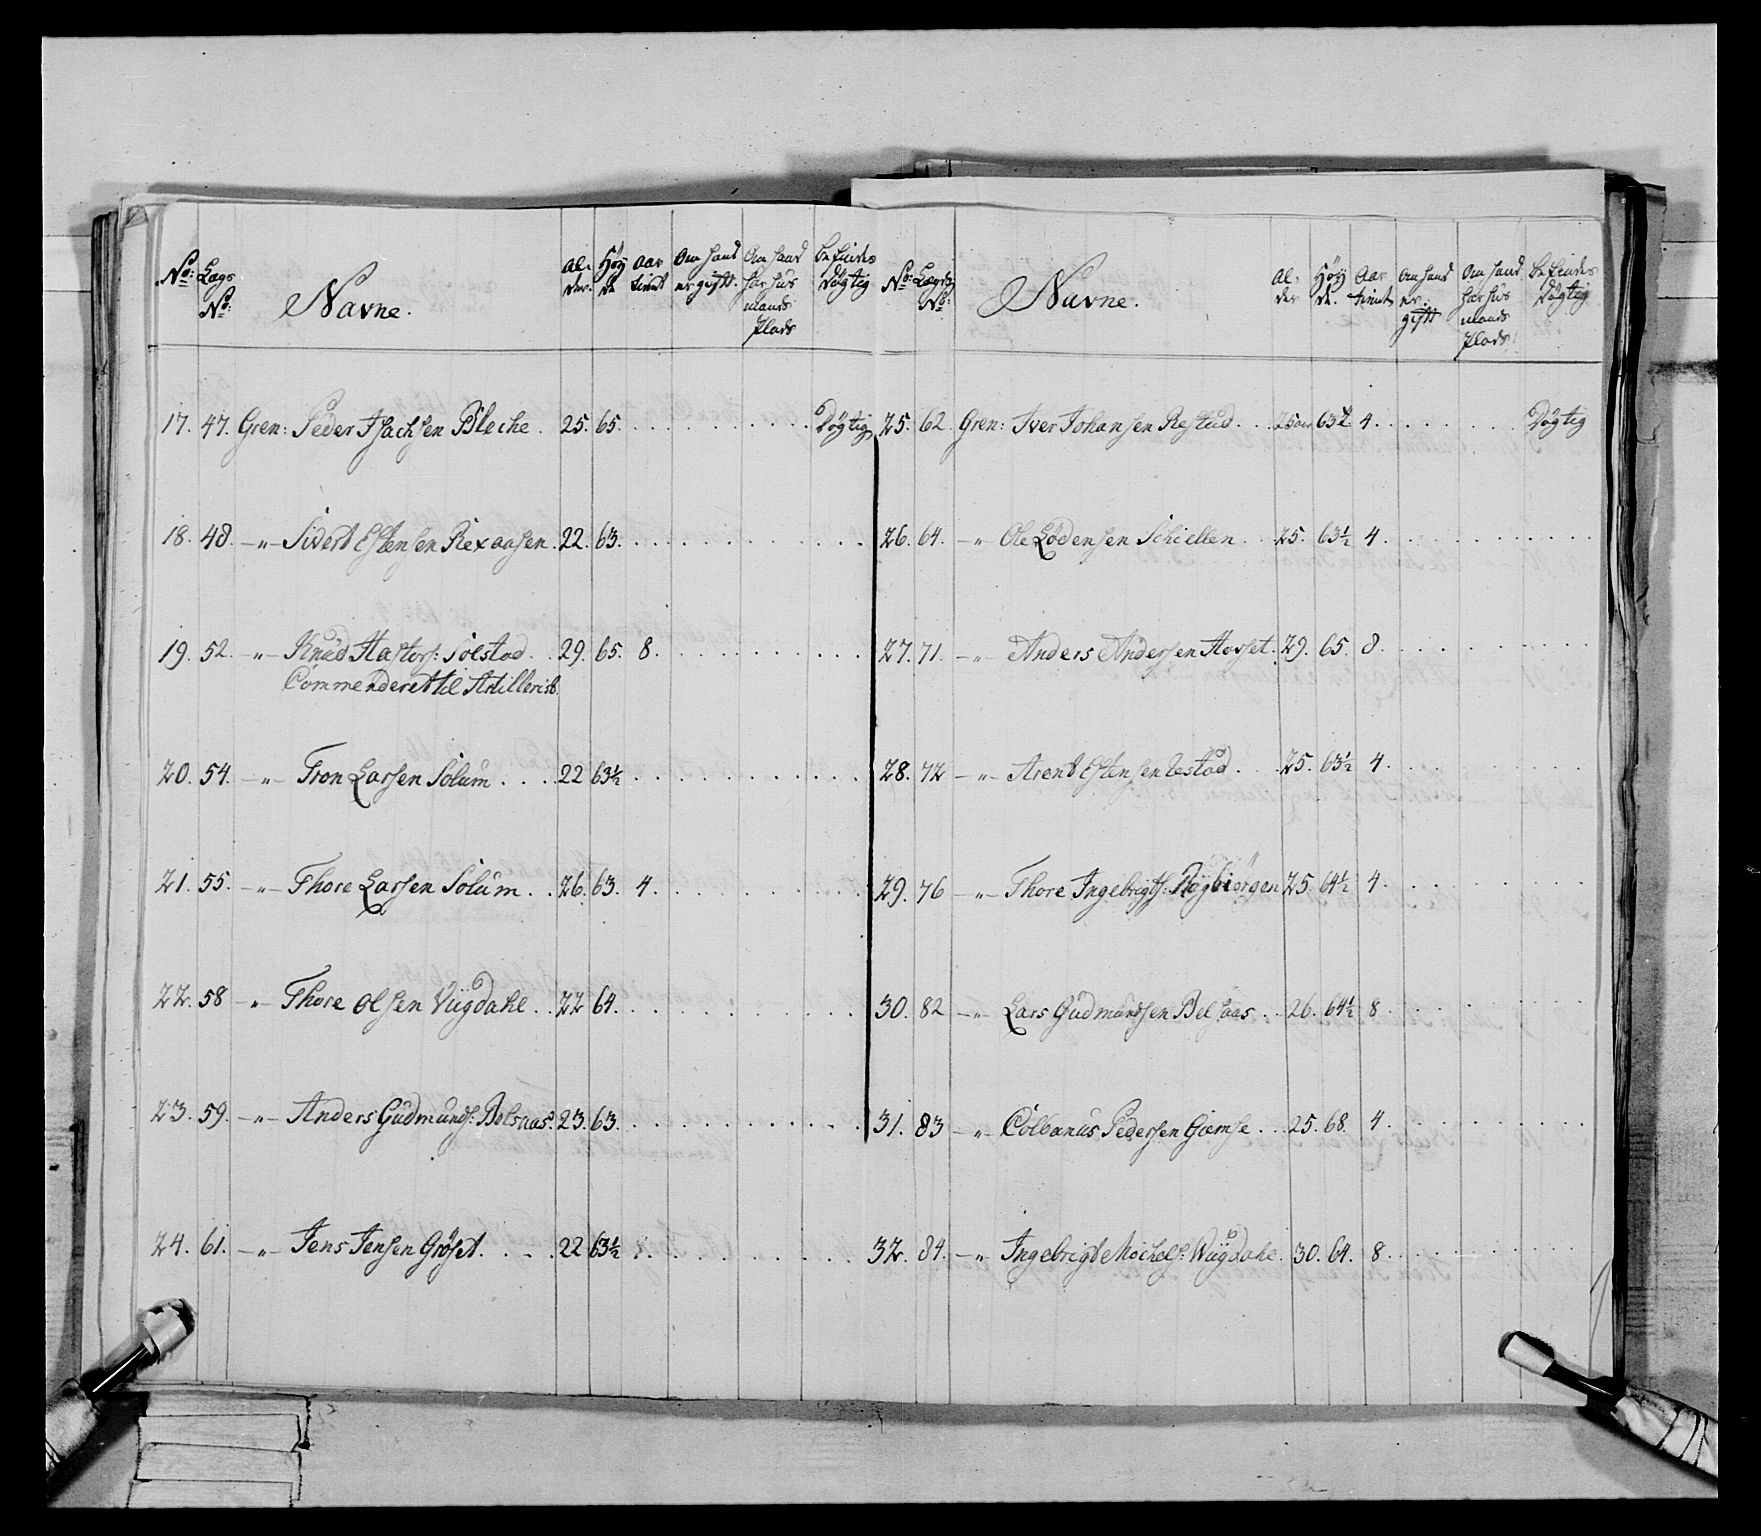 No: Lægs No: Navne. Al- der. Høy de Aar tient Om hand er gift. Om hand har huus mands Plads befindes Døgtig
17. 47. Gren: Peder Isachsen Bleche. 25. 65. Døgtig
18. 48. —"— Sivert Estensen Rexaasen. 22. 63.
19. 52. —"— Knud Hastors: Solstad. 29. 65. 8.
Commenderet til Artilleriet
20. 54. —"— Tron Larsen Solum. 22 63½
21. 55. —"— Thore Larsen Solum. 26. 63. 4.
22. 58 —"— Thore Olsen Viigdahl. 22 64.
23. 59. —"— Anders Gudmunds: Belsaas. 23. 63.
24. 61. —"— Jens Jensen Grøset. 22 63½
No: Lægds No: Navne. Al- der Høy de. Aar tient Om hand er gift Om hand har huus mands Plads. befindes Døgtig
25. 62. Gren: Iver Johansen 25 63½ 4. Døgtig
26. 64. —"— Ole Lødensen Schiellen. 25. 63½ 4.
27. 71. —"— Anders Andersen Hovset. 29. 65. 8.
28. 72 —"— Arent Estensen 25. 63½ 4.
29. 76 —"— Thore Ingebrigts: Røgbiørgen 25. 64½ 4.
30. 82 —"— Lars Gudmundsen Belsaas. 26. 64½ 8
31. 83 —"— Colbanus Pedersen Giemse. 25. 68. 4.
32. 84. —"— Ingebrigt Michels: Wiigdahl. 30. 64. 8.